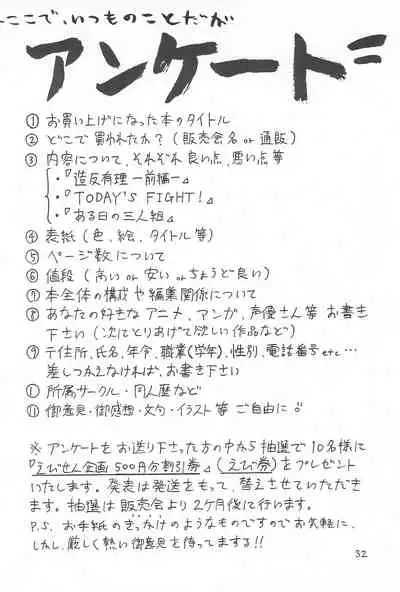 ここで、いつものことだが
アンケート
① お買い上げになった本のタイトル
② どこで買われたか？(販売会名 or 通販)
③ 内容について、それぞれ良い点、悪い点等
・『造反有理 ー前編ー』
・『TODAY'S FIGHT!』
・『ある日の三人組』
④ 表紙(色、絵、タイトル等)
⑤ ページ数について
⑥ 値段(高い or 安い or ちょうど良い)
⑦ 本全体の構成や編集関係について
⑧ あなたの好きなアニメ、マンガ、声優さん等お書き
下さい(次にとりあげて欲しい作品など)
⑨ 〒住所、氏名、年令、職業(学年)、性別、電話番号 etc…
差しつかえなければ、お書き下さい
⑩ 所属サークル・同人歴など
⑪ 御意見・御感想・文句・イラスト等ご自由に
※ アンケートをお送り下さった方の中から抽選で10名様に
『えびせん企画500円分割引券』(えび券)をプレゼント
いたします。発表は発送をもって、替えさせていただき
ます。抽選は販売会より2ケ月後に行います。
P.S. お手紙のきっかけのようなものですのでお気軽に、
しかし、厳しく熱い御意見を待ってまする!!
32